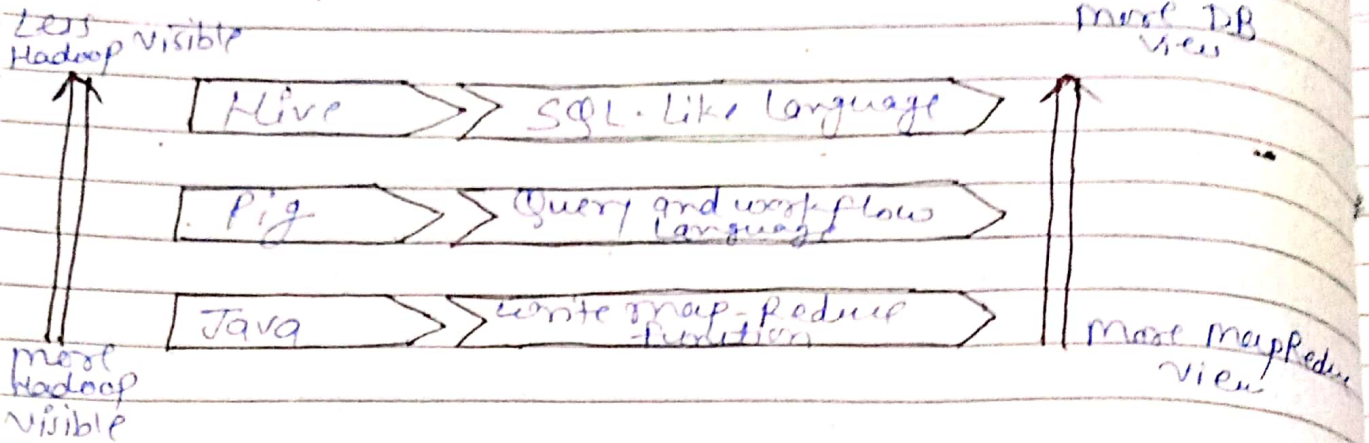 Less
Hadoop Visible
More DB
View
Hive
SQL-Like Language
Pig
Query and workflow
Language
Java
write Map-Reduce
Function
More
Hadoop
Visible
More MapReduce
View